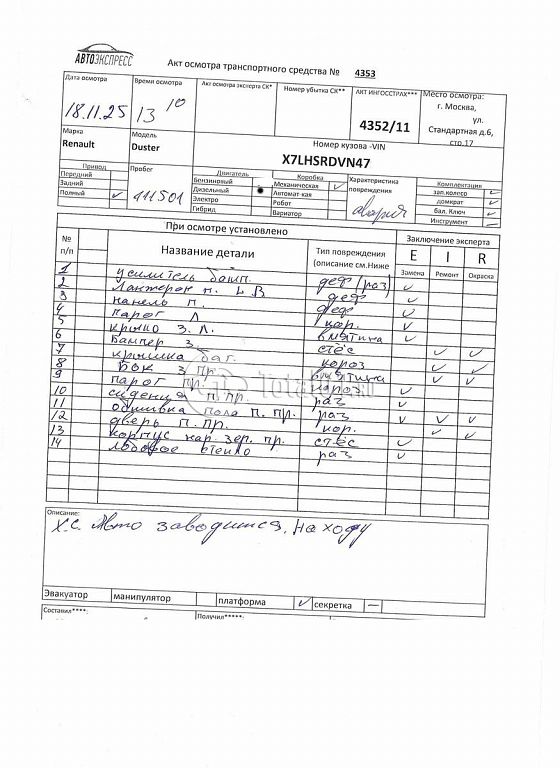 АВТОЭКСПРЕСС
Акт осмотра транспортного средства № 4353
Дата осмотра
18.11.25
Время осмотра
13 10
Акт осмотра эксперта СК*
Номер убытка СК**
АКТ ИНГОССТРАХ***
4352/11
Место осмотра:
г. Москва,
ул.
Стандартная д.6,
стр.17
Марка
Renault
Модель
Duster
Номер кузова -VIN
X7LHSRDVN47
Привод
Передний
Задний
Полный ✓
Пробег
411501
Двигатель
Бензиновый
Дизельный
Электро
Гибрид
Коробка
Механическая ✓
Автомат-кая
Робот
Вариатор
Характеристика
повреждения
авария
Комплектация
зап.колесо ✓
домкрат ✓
бал. Ключ ✓
Инструмент
При осмотре установлено
Заключение эксперта
№ п/п
Название детали
Тип повреждения
(описание см.Ниже
E I R
Замена Ремонт Окраска
1 усилитель бамп. деф (раз) ✓
2 Лонжерон п. деф ✓
3 панель п. деф ✓
4 парог Л кор. ✓
5 крыло З. Л. вмятина ✓
6 Бампер З стёс ✓ ✓
7 крышка баг. короз ✓ ✓
8 Бок З пр. вмятина ✓ ✓
9 парог пр. короз. ✓
10 сиденья п. пр. раз ✓
11 обшивка пола п. пр. раз ✓ ✓ ✓
12 дверь П. пр. кор. ✓ ✓
13 корпус нар. зер. пр. стёс ✓
14 лобовое стекло раз ✓
Total
Описание:
Х.С. Авто заводится, на ходу
Эвакуатор
манипулятор
платформа ✓
секретка —
Составил****:
Получил*****: